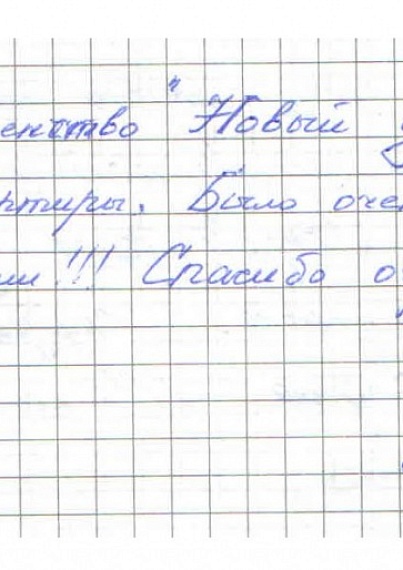 енство "Новый
ртиры. Было оче
ми!!! Спасибо о